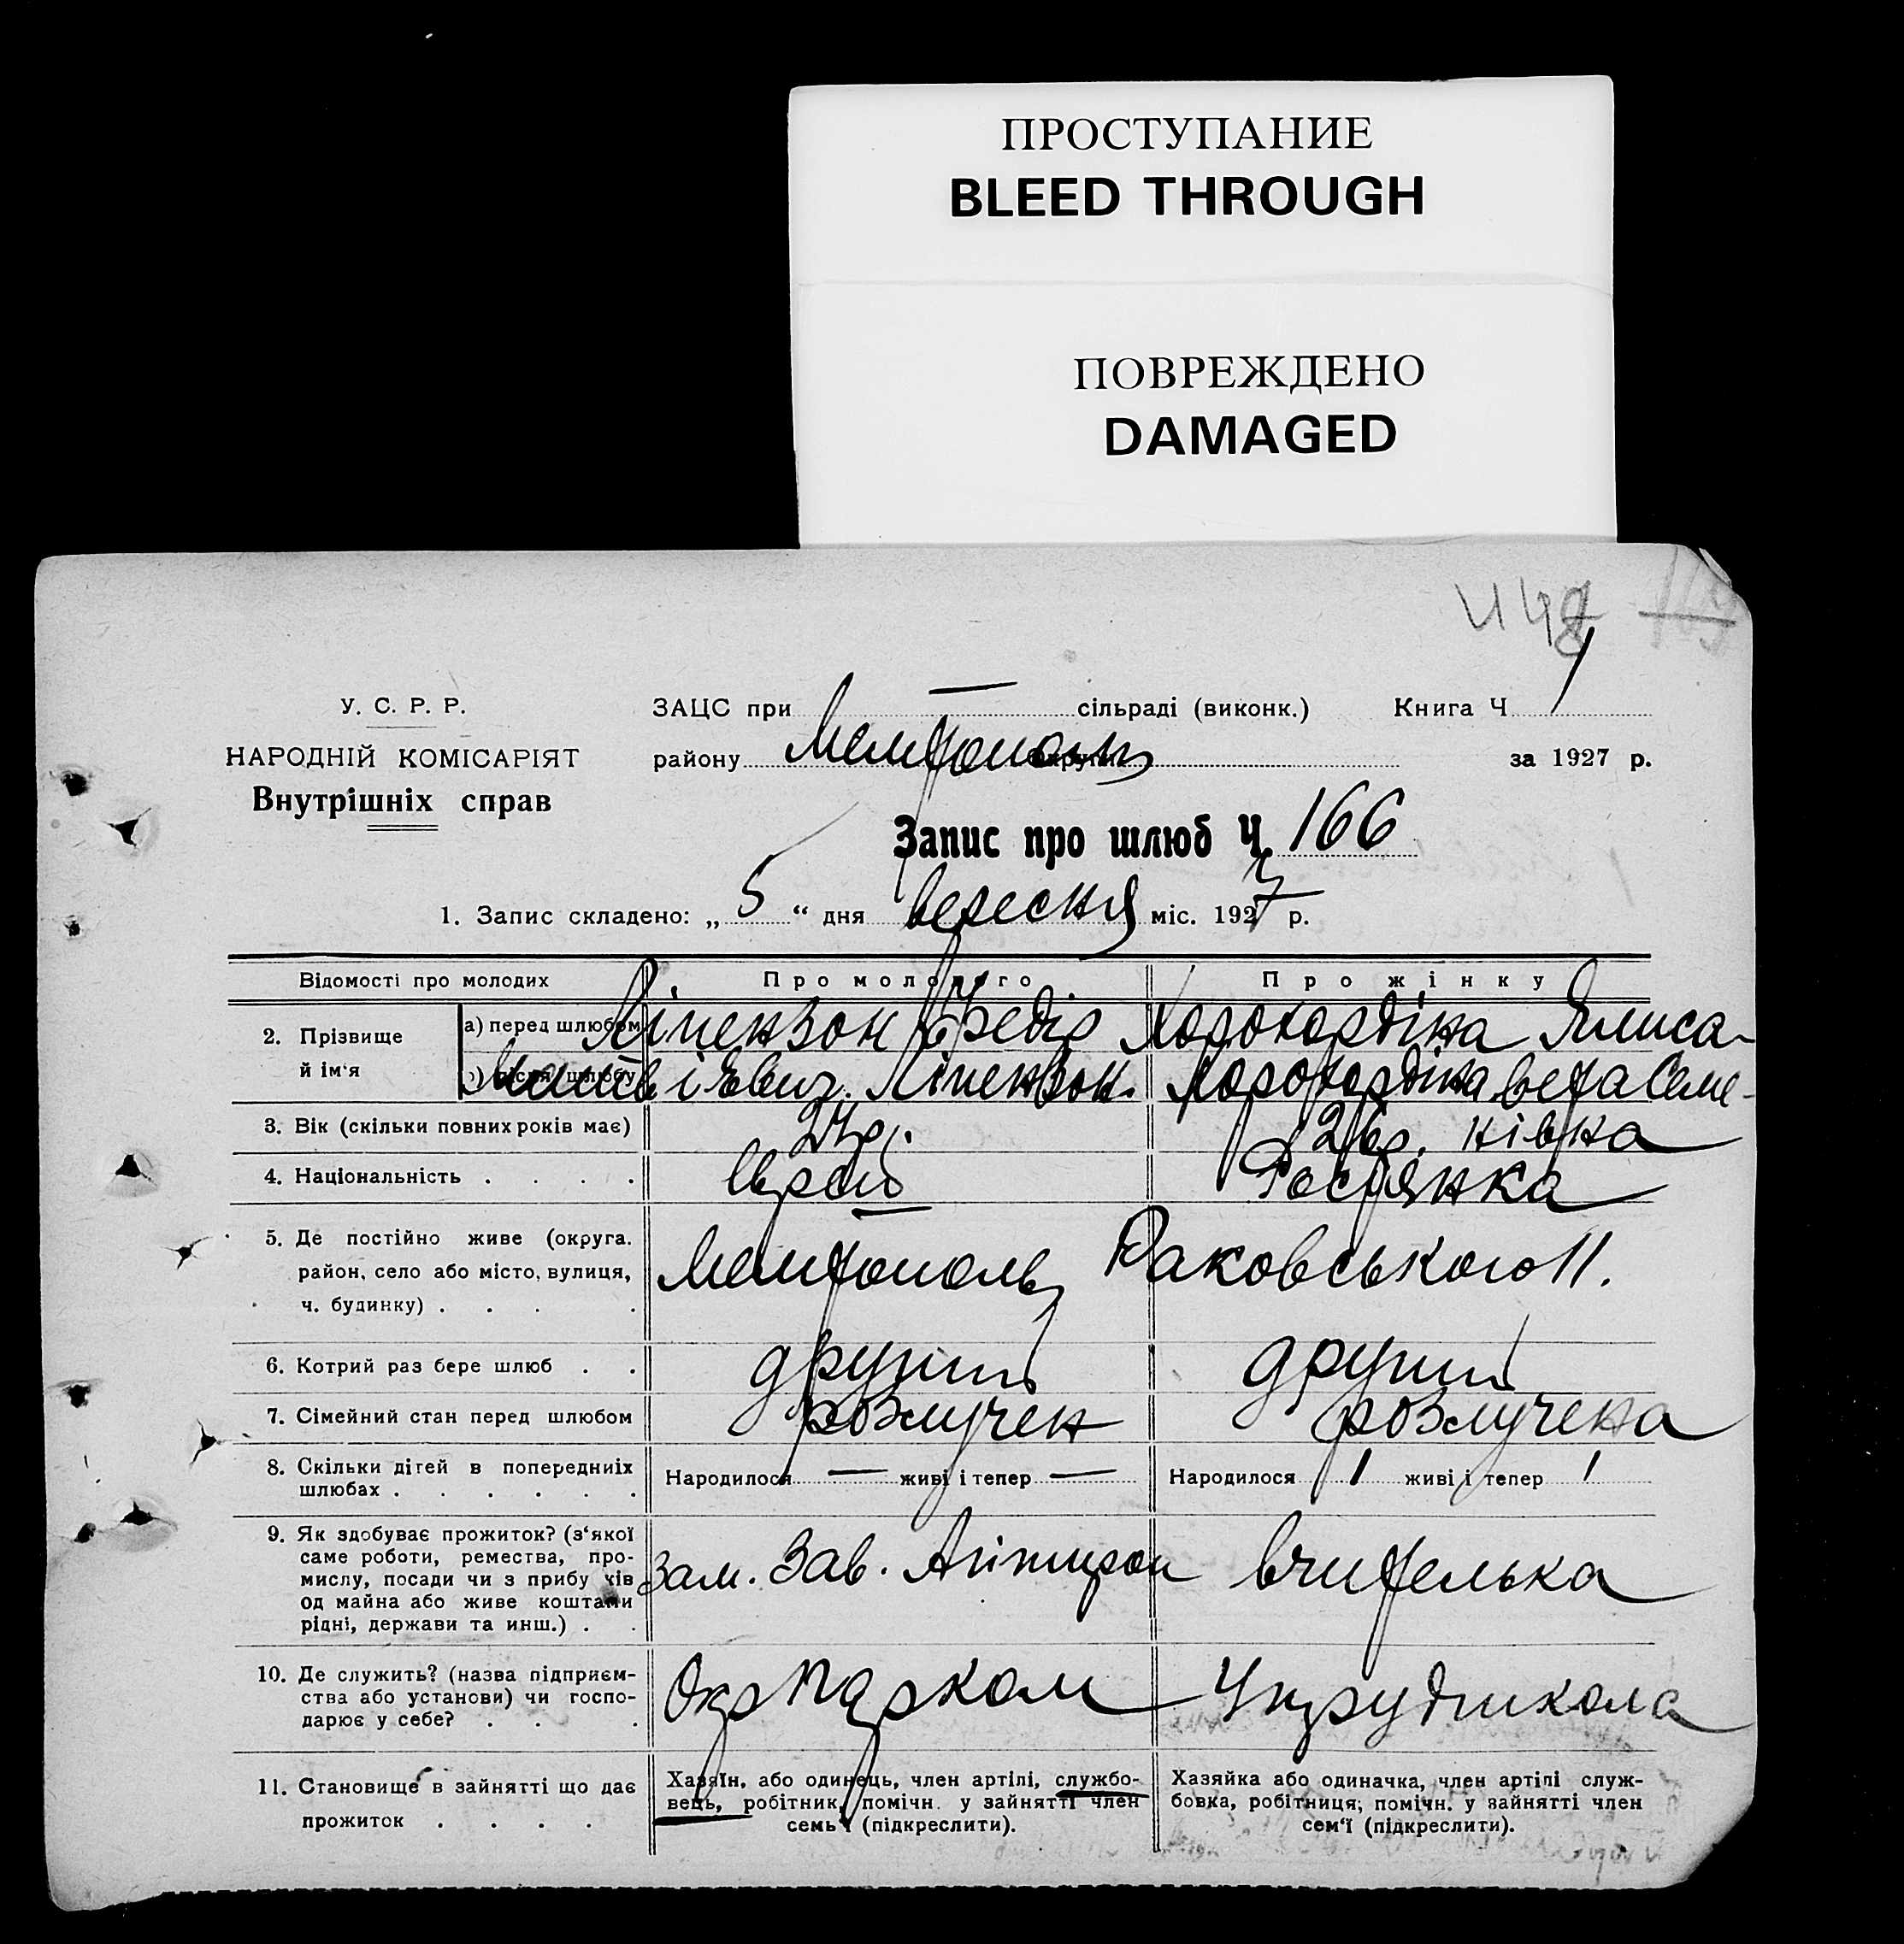 ПРОСТУПАНИЕ
BLEED THROUGH
ПОВРЕЖДЕНО
DAMAGED
У. С. Р. Р.
НАРОДНІЙ КОМІСАРІЯТ
Внутрішніх справ
ЗАЦС при — сільраді (виконк.) Книга Ч 1
району Мелітополь за 1927 р.
Запис про шлюб Ч. 166
1. Запис складено: „ 5 “ дня вересня міс. 1927 р.
Відомості про молодих Про молодого Про жінку
2. Прізвище й ім‘я
а) перед шлюбом Ліпензон Федір Хорохордіна Єлиса-
Ліпензон. Хорохордіна вета Семе-
3. Вік (скільки повних років має) 26р. нівка
4. Національність . . . . Єврей Росіянка
5. Де постійно живе (округа.
район, село або місто, вулиця,
ч. будинку) . . . . Мелітополь Раковського 11.
6. Котрий раз бере шлюб . . другий другий
7. Сімейний стан перед шлюбом розлучен розлучена
8. Скільки дітей в попередниіх
шлюбах . . . . . . Народилося — живі і тепер — Народилося 1 живі і тепер 1
9. Як здобуває прожиток? (з‘якої
саме роботи, ремества, про-
мислу, посади чи з прибу ків
од майна або живе коштами
рідні, держави та инш.) . . Зам. Зав. вчителька
10. Де служить? (назва підприєм-
ства або установи) чи госпо-
дарює у себе? . . . Окрпарком
11. Становище в зайнятті що дає
прожиток . . . .
Хазяїн, або одинець, член артілі, службо-
вець, робітник, помічн. у зайнятті член
семь‘ї (підкреслити).
Хазяйка або одиначка, член артілі служ-
бовка, робітниця; помічн. у зайнятті член
сем‘ї (підкреслити).